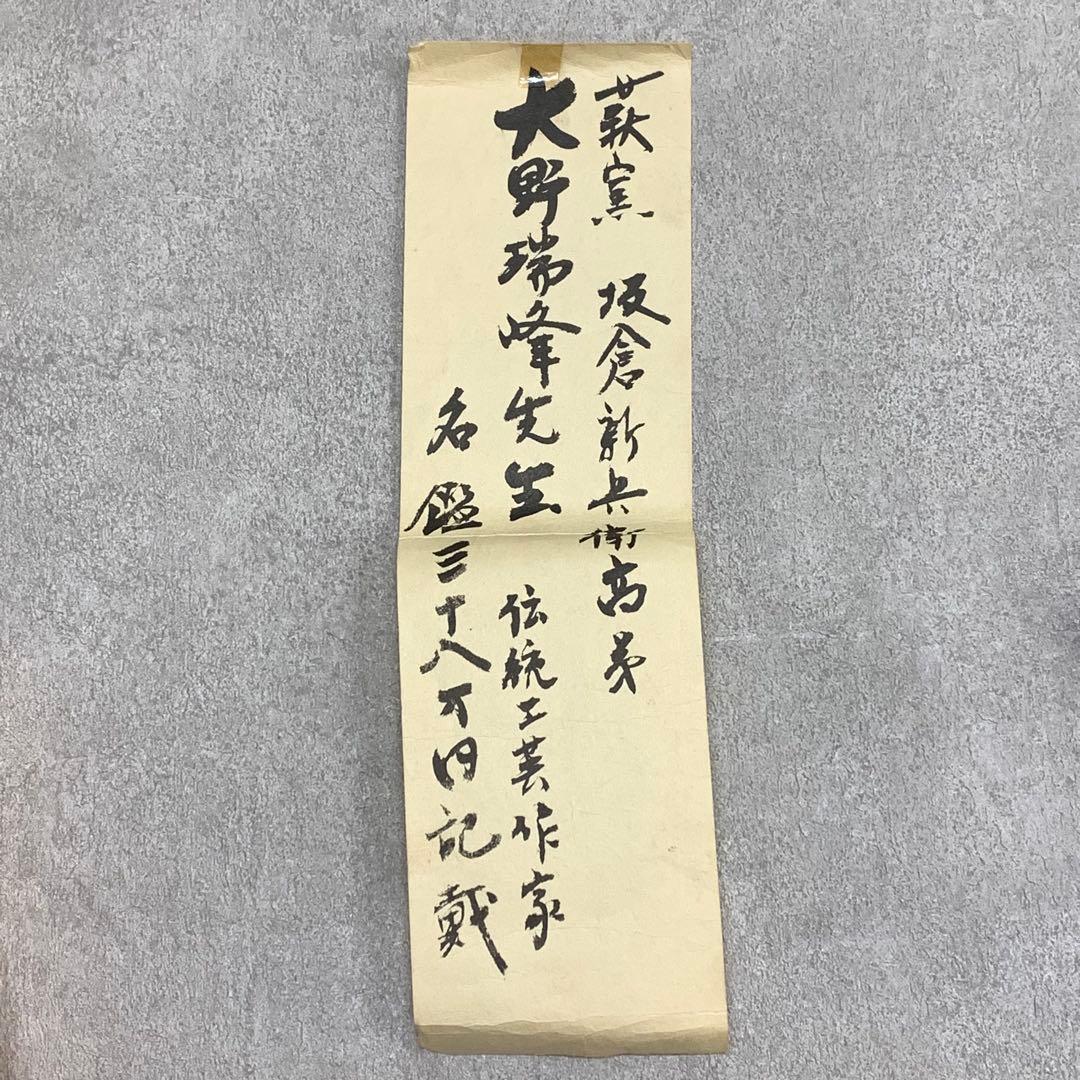 萩窯 坂倉新兵衛高弟
大野瑞峰先生 伝統工芸作家
名鑑三十八万円記戴